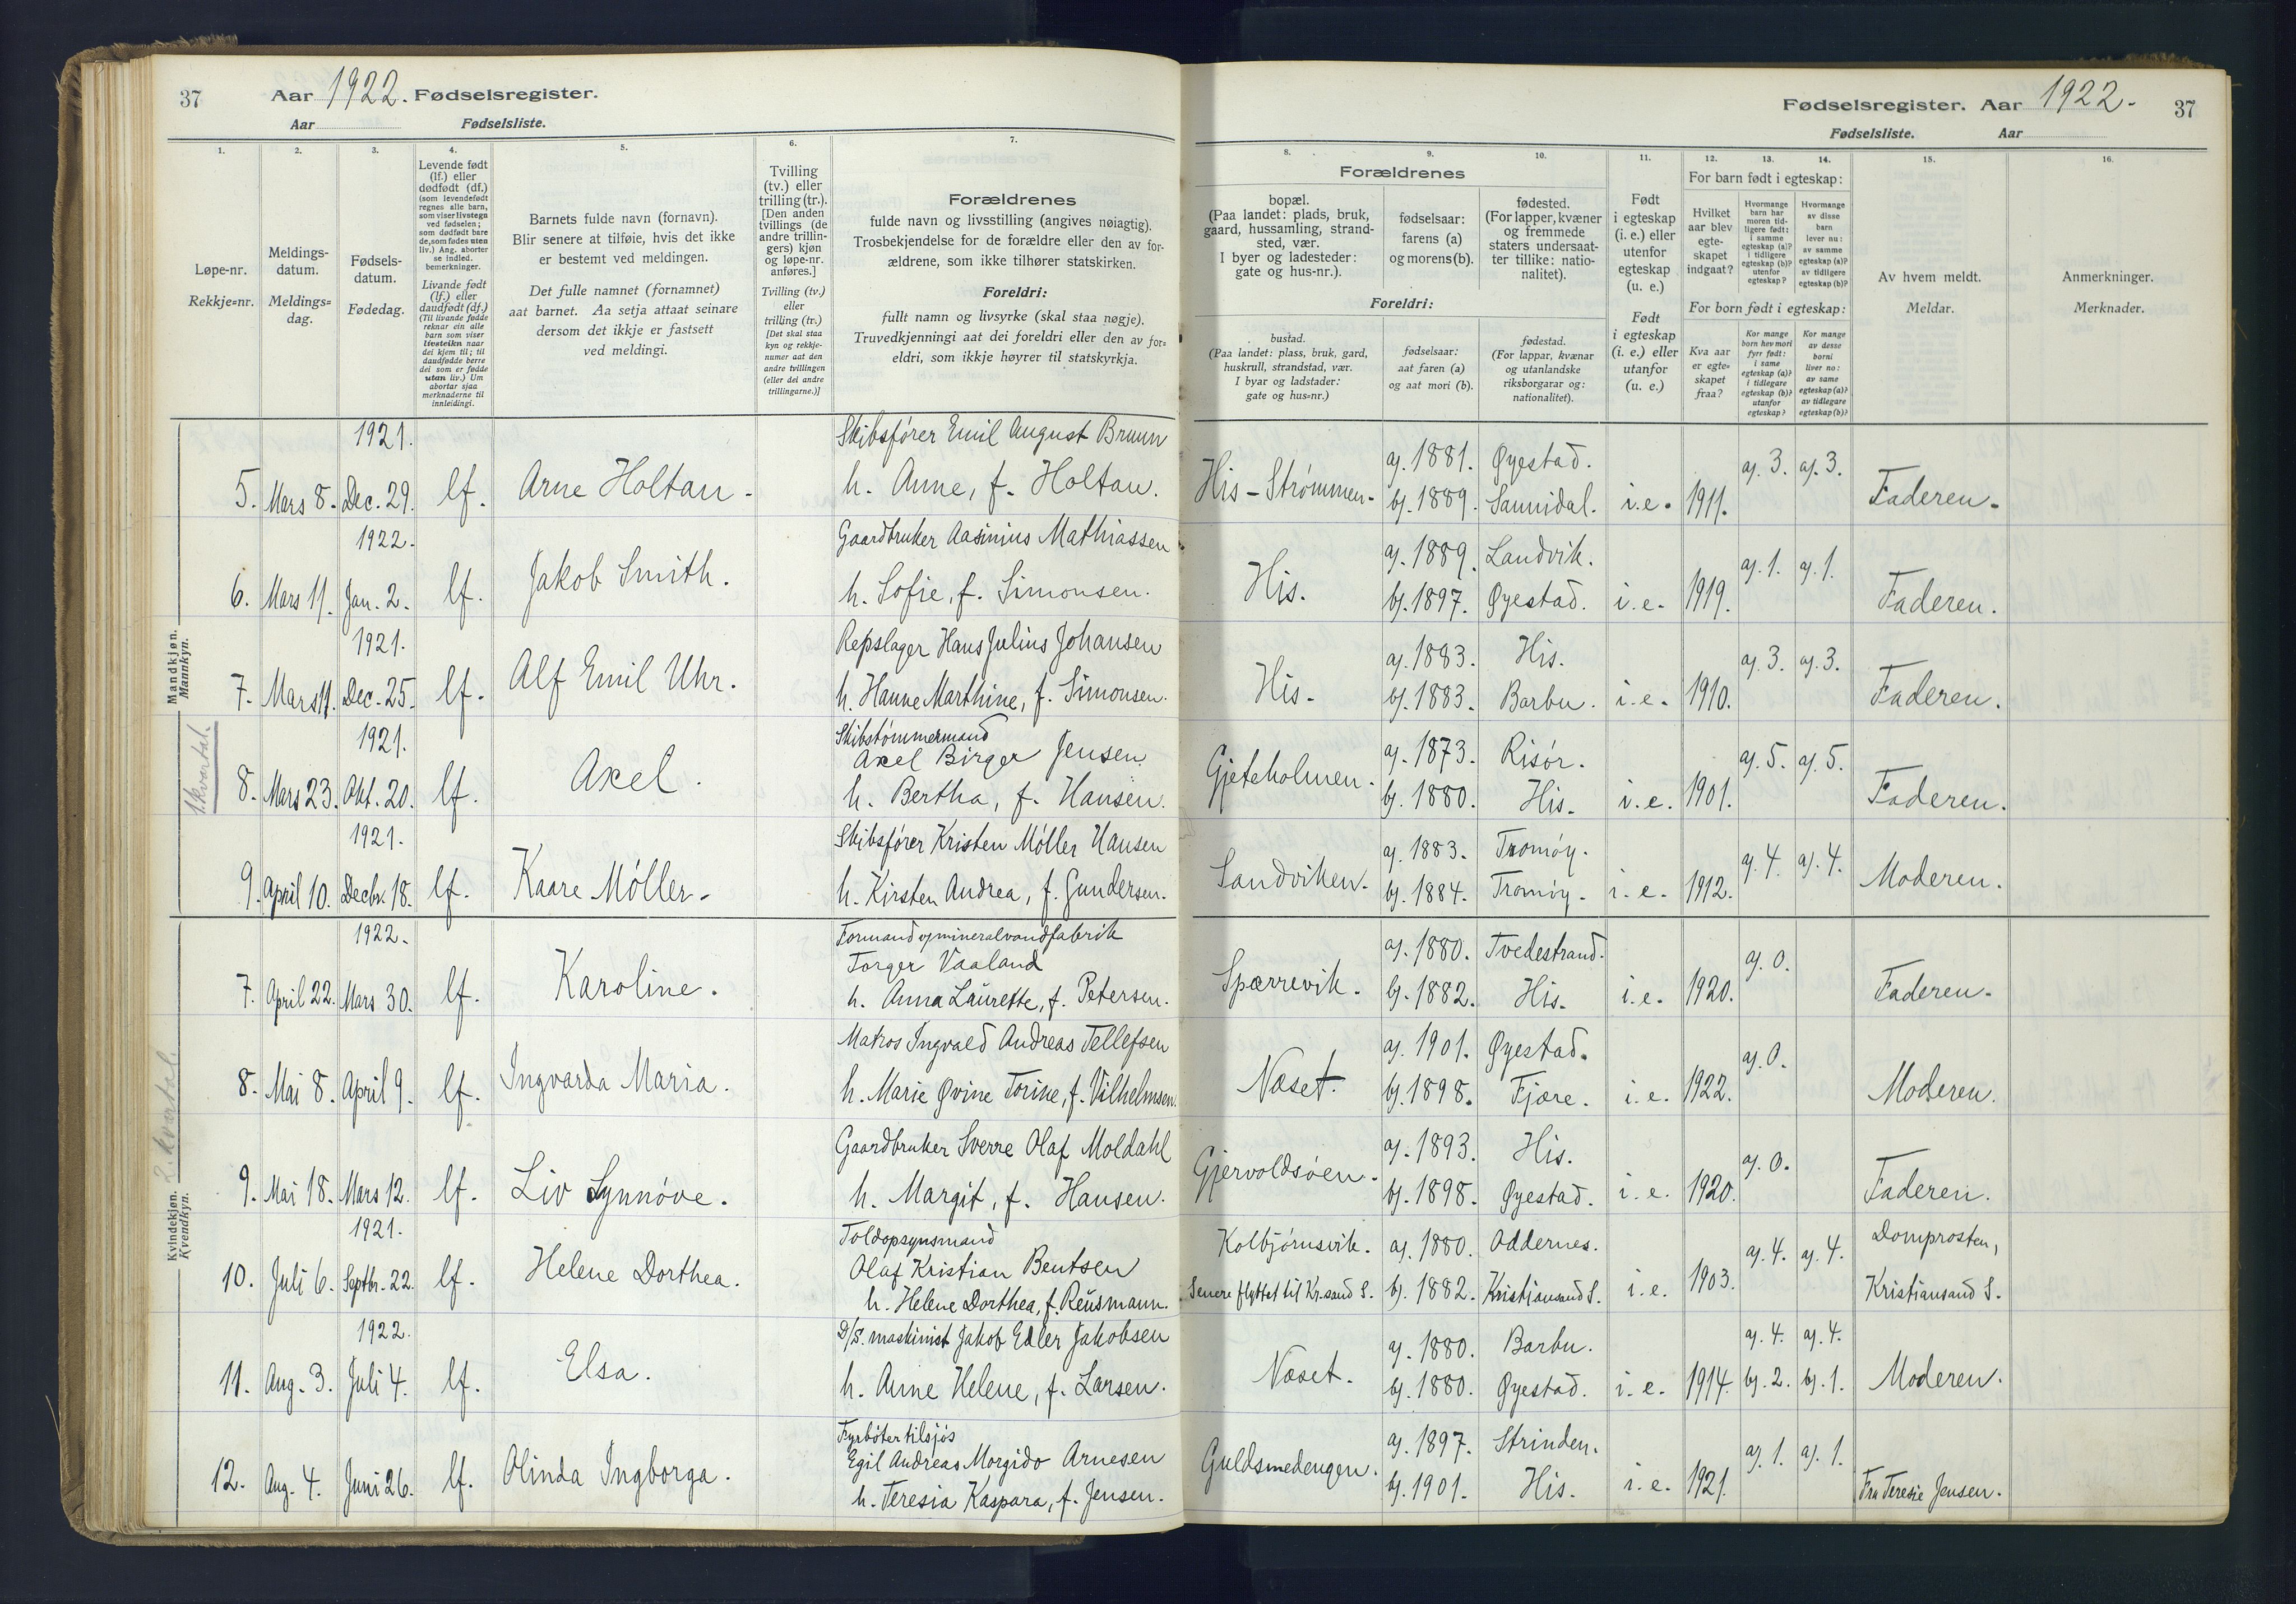 37 Aar 1922. Fødselsregister.
Aar Fødselsliste.
1. 2. 3. 4. 5. 6. 7.
Løpe-nr.
Rekkje=nr.
Meldings-
datum.
Meldings=
dag.
Fødsels-
datum.
Fødedag.
Levende født
(lf.) eller
dødfødt (df.)
(som levendefødt
regnes alle barn,
som viser livstegn
ved fødselen;
som dødfødt bare
de, som fødes uten
liv.) Ang. aborter
se indled.
bemerkninger.
Livande født
(lf.) eller
daudfødt (df.)
(Til livande fødde
reknar ein alle
barn som viser
livsteikn naar
dei kjem til; til
daudfødde berre
dei som er fødde
utan liv.) Um
abortar sjaa
merknaderne til
innleidingi.
Barnets fulde navn (fornavn).
Blir senere at tilføie, hvis det ikke
er bestemt ved meldingen.
Det fulle namnet (fornamnet)
aat barnet. Aa setja attaat seinare
dersom det ikkje er fastsett
ved meldingi.
Tvilling
(tv.) eller
trilling (tr.).
[Den anden
tvillings (de
andre trillin-
gers) kjøn
og løpe-nr.
anføres.]
Tvilling (tv.)
eller
trilling (tr.)
[Det skal staa
kyn og rekkje-
numer aat den
andre tvillingen
(eller dei andre
trillingarne.)]
Forældrenes
fulde navn og livsstilling (angives nøiagtig).
Trosbekjendelse for de forældre eller den av for-
ældrene, som ikke tilhører statskirken.
Foreldri:
fullt namn og livsyrke (skal staa nøgje).
Truvedkjenningi aat dei foreldri eller den av for=
eldri, som ikkje høyrer til statskyrkja.
Mandkjøn.
Mannkyn.
1. kvartal.
1921.
Skibsfører Emil August Bruun
5. Mars 8. Dec. 29. lf. Arne Holtan. h. Anne, f. Holtan.
1922.
Gaardbruker Aasinius Mathiassen
6. Mars 11. Jan. 2. lf. Jakob Smith. h. Sofie, f. Simonsen.
1921.
Repslager Hans Julius Johansen
7. Mars 11. Dec. 25. lf. Alf Emil Uhr. h. Hanne Marthine, f. Simonsen.
1921.
Skibstømmermand
Axel Birger Jensen
8. Mars 23. Okt. 20. lf. Axel. h. Bertha, f. Hansen.
1921.
Skibsfører Kristen Møller Hansen
9. April 10. Decbr. 18. lf. Kaare Møller. h. Kirsten Andrea, f. Gundersen.
Kvindekjøn.
Kvendkyn.
2. kvartal.
1922.
Formand v mineralvandfabrik
Torger Vaaland
7. April 22. Mars 30. lf. Karoline. h. Anna Laurette, f. Petersen.
Matros Ingvald Andreas Tellefsen
8. Mai 8. April 9. lf. Ingvarda Maria. h. Marie Øvine Torine, f. Vilhelmsen.
Gaardbruker Sverre Olaf Moldahl
9. Mai 18. Mars 12. lf. Liv Synnøve. h. Margit, f. Hansen.
1921.
Toldopsynsmand
Olaf Kristian Bentsen
10. Juli 6. Septbr. 22. lf. Helene Dorthea. h. Helene Dorthea, f. Reusmann.
1922.
D/S. maskinist Jakob Edler Jakobsen
11. Aug. 3. Juli 4. lf. Elsa. h. Anne Helene, f. Larsen.
Fyrbøter tilsjøs
Egil Andreas Morgido Arnesen
12. Aug. 4. Juni 26. lf. Olinda Ingborga. h. Teresia Kaspara, f. Jensen.
Fødselsregister. Aar 1922. 37
Fødselsliste. Aar
8. 9. 10. 11. 12. 13. 14. 15. 16.
Forældrenes
bopæl.
(Paa landet: plads, bruk,
gaard, hussamling, strand-
sted, vær.
I byer og ladesteder:
gate og hus-nr.).
fødselsaar:
farens (a)
og morens (b).
fødested.
(For lapper, kvæner
og fremmede
staters undersaat-
ter tillike: natio-
nalitet).
Foreldri:
bustad.
(Paa landet: plass, bruk, gard,
huskrull, strandstad, vær.
I byar og ladstader:
gate og hus=nr.)
fødselsaar:
aat faren (a)
og aat mori (b).
fødestad.
(For lappar, kvænar
og utanlandske
riksborgarar og:
nationalitet).
Født
i egteskap
(i. e.) eller
utenfor
egteskap
(u. e.)
Født
i egteskap
(i. e.) eller
utanfor
(u. e.)
For barn født i egteskap:
Hvilket
aar blev
egte-
skapet
indgaat?
Hvormange
barn har
moren tid-
ligere født:
i samme
egteskap (a)?
i tidligere
egteskap (b)?
utenfor
egteskap?
Hvormange
av disse
barn
lever nu:
av samme
egteskap (a)?
av tidligere
egteskap (b)?
For born født i egteskap:
Kva aar
er egte=
skapet
fraa?
Kor mange
born hev mori
fyrr født:
i same
egteskap (a)?
i tidlegare
egteskap (b)?
utanfor
egteskap?
Kor mange
av desse
borni
liver no:
av same
egteskap (a)?
av tidlegare
egteskap (b)?
Av hvem meldt.
Meldar.
Anmerkninger.
Merknader.
a). 1881. Øyestad. a). 3. a). 3.
His-Strømmen. b). 1889. Sannidal. i. e. 1911. Faderen.
a). 1889. Landvik. a). 1. a). 1.
His. b). 1897. Øyestad. i. e. 1919. Faderen.
a). 1883. His. a). 3. a). 3.
His. b). 1883. Barbu. i. e. 1910. Faderen.
a). 1873. Risør. a). 5. a). 5.
Gjeteholmen. b). 1880. His. i. e. 1901. Faderen.
a). 1883. Tromøy. a). 4. a). 4.
Sandviken. b). 1884. Tromøy. i. e. 1912. Moderen.
a). 1880. Tvedestrand. a). 0.
Spærrevik. b). 1882. His. i. e. 1920. Faderen.
a). 1901. Øyestad. a). 0.
Næset. b). 1898. Fjære. i. e. 1922. Moderen.
a). 1893. His. a). 0.
Gjervoldsøen. b). 1898. Øyestad. i. e. 1920. Faderen.
Kolbjørnsvik. a). 1880. Oddernes. a). 4. a). 4. Domprosten,
Senere flyttet til Kr.sand S. b). 1882. Kristiansand S. i. e. 1903. Kristiansand S.
a). 1880. Barbu. a). 4. a). 4.
Næset. b). 1880. Øyestad. i. e. 1914. b). 2. b). 1. Moderen.
a). 1897. Strinden. a). 1. a). 1.
Guldsmedengen. b). 1901. His. i. e. 1921. Fru Teresie Jensen.